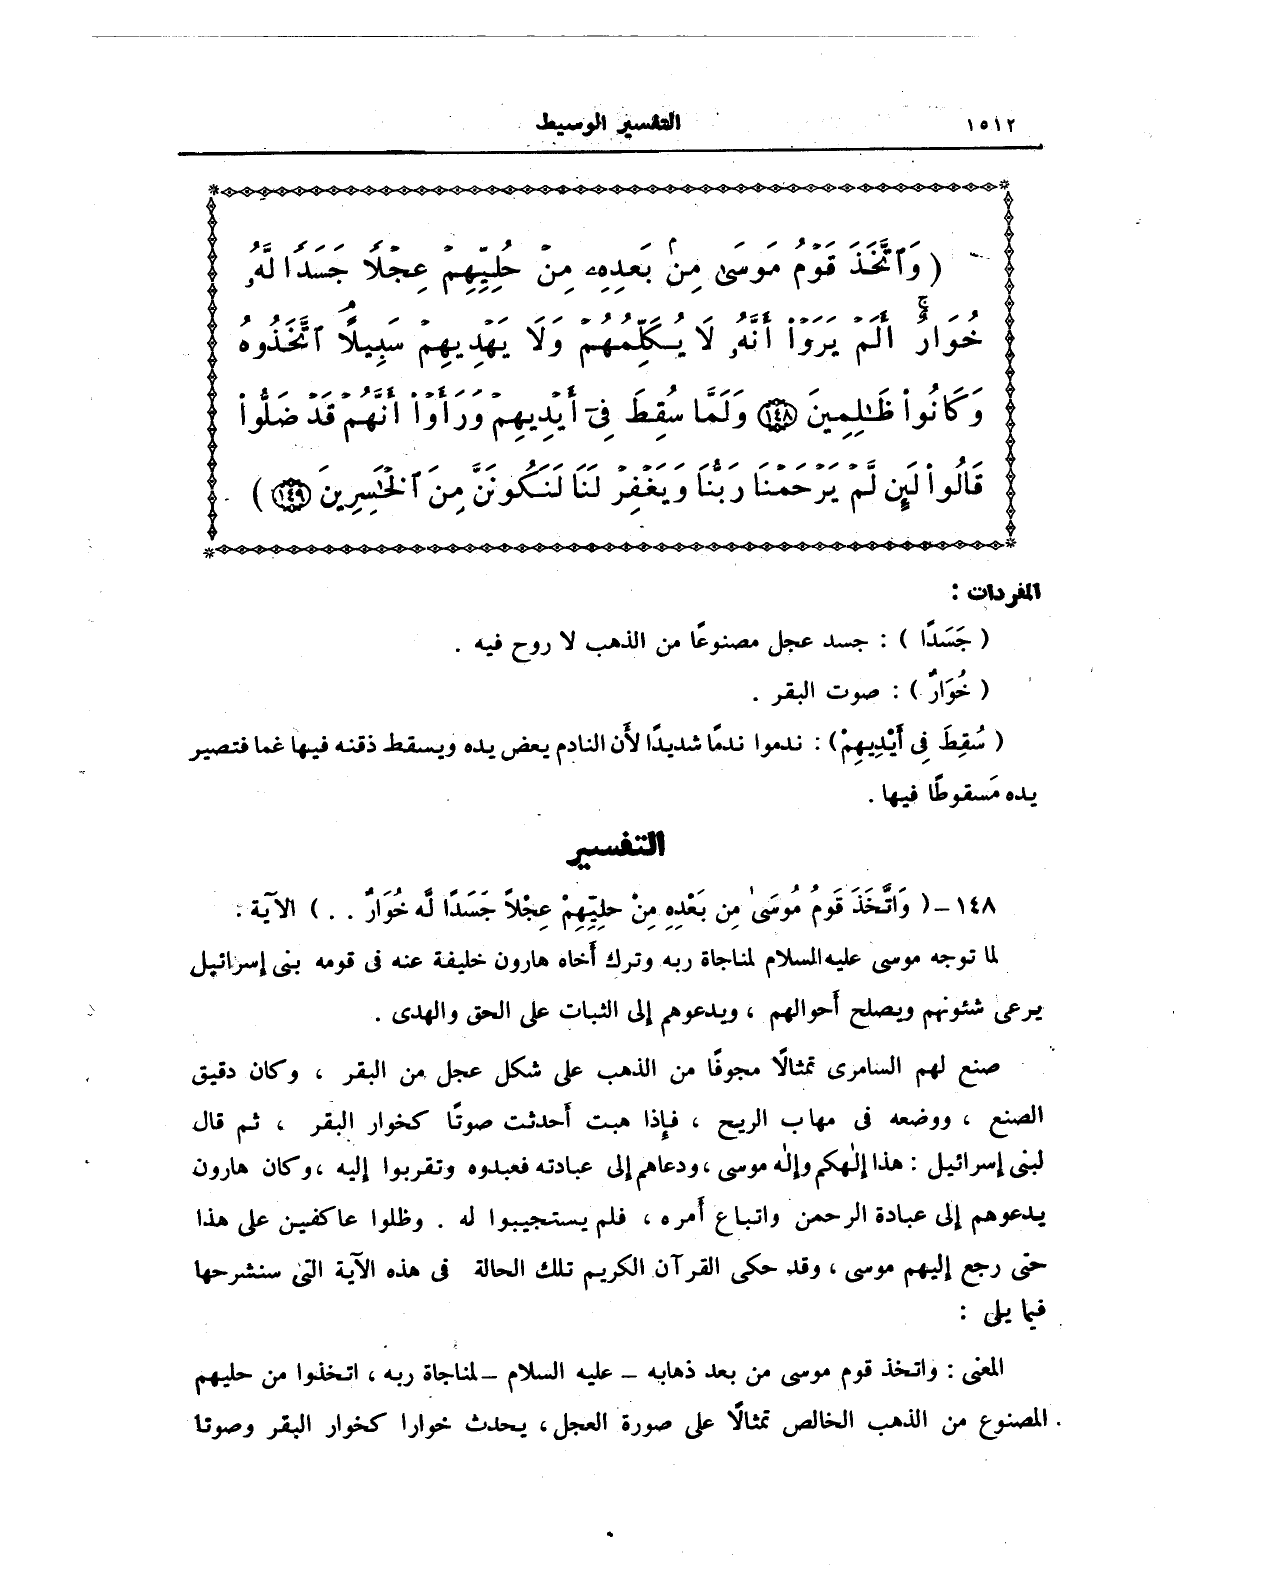 ١٥١٢
التفسير الوسيط
( وَٱتَّخَذَ قَوْمُ مُوسَىٰ مِنۢ بَعْدِهِۦ مِنْ حُلِيِّهِمْ عِجْلًا جَسَدًا لَّهُۥ
خُوَارٌ ۚ أَلَمْ يَرَوْا۟ أَنَّهُۥ لَا يُكَلِّمُهُمْ وَلَا يَهْدِيهِمْ سَبِيلًا ۘ ٱتَّخَذُوهُ
وَكَانُوا۟ ظَـٰلِمِينَ ١٤٨ وَلَمَّا سُقِطَ فِىٓ أَيْدِيهِمْ وَرَأَوْا۟ أَنَّهُمْ قَدْ ضَلُّوا۟
قَالُوا۟ لَئِن لَّمْ يَرْحَمْنَا رَبُّنَا وَيَغْفِرْ لَنَا لَنَكُونَنَّ مِنَ ٱلْخَـٰسِرِينَ ١٤٩ )
المفردات :
( جَسَدًا ) : جسد عجل مصنوعًا من الذهب لا روح فيه .
( خُوَارٌ ) : صوت البقر .
( سُقِطَ فِى أَيْدِيهِمْ) : ندموا ندمًا شديدًا لأن النادم يعض يده ويسقط ذقنه فيها غما فتصير
يده مَسقوطًا فيها .
التفسير
١٤٨ – ( وَاتَّخَذَ قَومُ مُوسَىٰ مِن بَعْدِهِ مِنْ حليِّهِمْ عِجْلاً جَسَدًا لَّه خُوَارٌ . . ) الآية :
لما توجه موسى عليه السلام لمناجاة ربه وترك أخاه هارون خليفة عنه فى قومه بنى إسرائيل
يرعى شئونهم ويصلح أحوالهم ، ويدعوهم إلى الثبات على الحق والهدى .
صنع لهم السامرى تمثالًا مجوفًا من الذهب على شكل عجل من البقر ، وكان دقيق
الصنع ، ووضعه فى مهاب الريح ، فإذا هبت أحدثت صوتًا كخوار البقر ، ثم قال
لبنى إسرائيل : هذا إلٰهكم وإلٰه موسى ، ودعاهم إلى عبادته فعبدوه وتقربوا إليه ، وكان هارون
يدعوهم إلى عبادة الرحمن واتباع أمره ، فلم يستجيبوا له . وظلوا عاكفين على هذا
حتى رجع إليهم موسى ، وقد حكى القرآن الكريم تلك الحالة فى هذه الآية التى سنشرحها
فيما يلى :
المعنى : واتخذ قوم موسى من بعد ذهابه – عليه السلام – لمناجاة ربه ، اتخذوا من حليهم
المصنوع من الذهب الخالص تمثالًا على صورة العجل ، يحدث خوارا كخوار البقر وصوتا